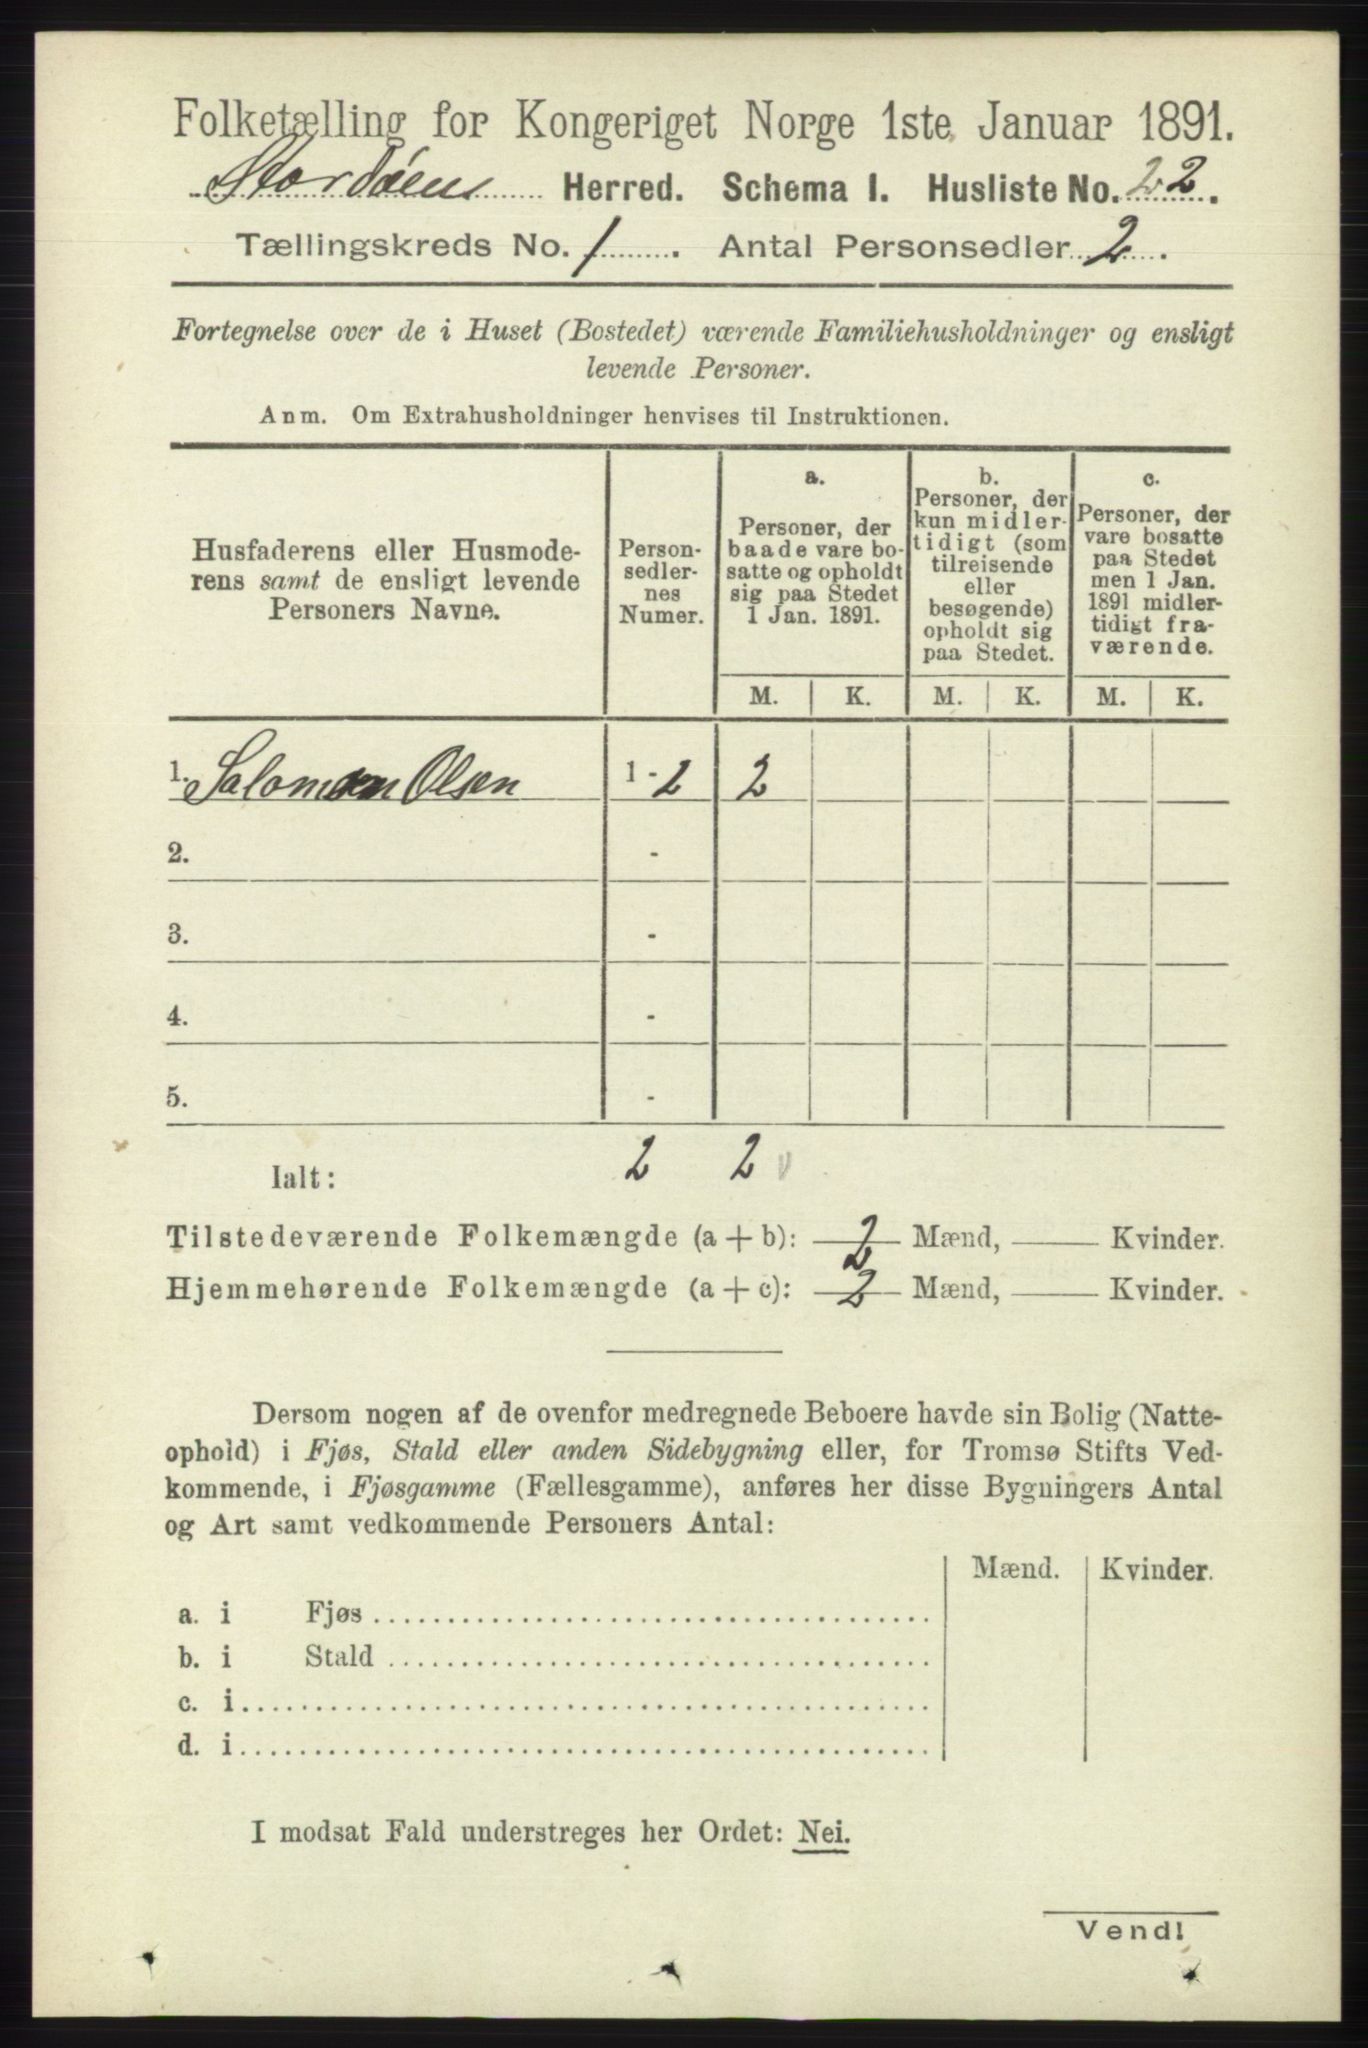 Folketælling for Kongeriget Norge 1ste Januar 1891.
Stordøens Herred. Schema I. Husliste No. 22.
Tællingskreds No. 1. Antal Personsedler 2.
Fortegnelse over de i Huset (Bostedet) værende Familiehusholdninger og ensligt
levende Personer.
Anm. Om Extrahusholdninger henvises til Instruktionen.
Husfaderens eller Husmode-
rens samt de ensligt levende
Personers Navne.
Person-
sedler-
nes
Numer.
a.
Personer, der
baade vare bo-
satte og opholdt
sig paa Stedet
1 Jan. 1891.
b.
Personer, der
kun midler-
tidigt (som
tilreisende
eller
besøgende)
opholdt sig
paa Stedet.
c.
Personer, der
vare bosatte
paa Stedet
men 1 Jan.
1891 midler-
tidigt fra-
værende.
M. K. M. K. M. K.
1. Salomon Olsen 1 - 2 2
2. -
3. -
4. -
5. -
Ialt: 2 2
Tilstedeværende Folkemængde (a + b): 2 Mænd, Kvinder.
Hjemmehørende Folkemængde (a + c): 2 Mænd, Kvinder.
Dersom nogen af de ovenfor medregnede Beboere havde sin Bolig (Natte-
ophold) i Fjøs, Stald eller anden Sidebygning eller, for Tromsø Stifts Ved-
kommende, i Fjøsgamme (Fællesgamme), anføres her disse Bygningers Antal
og Art samt vedkommende Personers Antal:
Mænd. Kvinder.
a. i Fjøs
b. i Stald
c. i
d. i
I modsat Fald understreges her Ordet: Nei.
Vend!